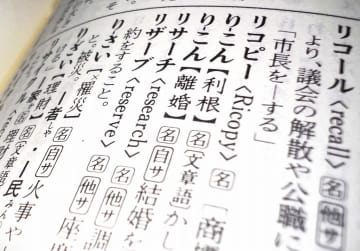 リコール〈recall〉名他サ
より、議会の解散や公職に
「市長を―する」
リコピー〈Ricopy〉名〔商標
りこん【利根】名〔文章語〕かし
りこん【離婚】名自サ結婚を
リサーチ〈research〉名他サ調
リザーブ〈reserve〉名他サ座
約をすること。
りさい【×罹災】名自サ火事や
と。被災。―者 ―民
りざい【理財】名〔文章語〕